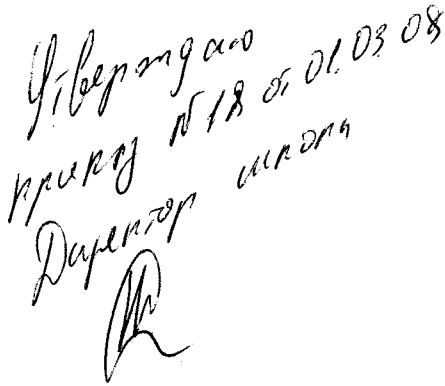 Утверждаю
приказ №18 от 01.03.08
Директор школы